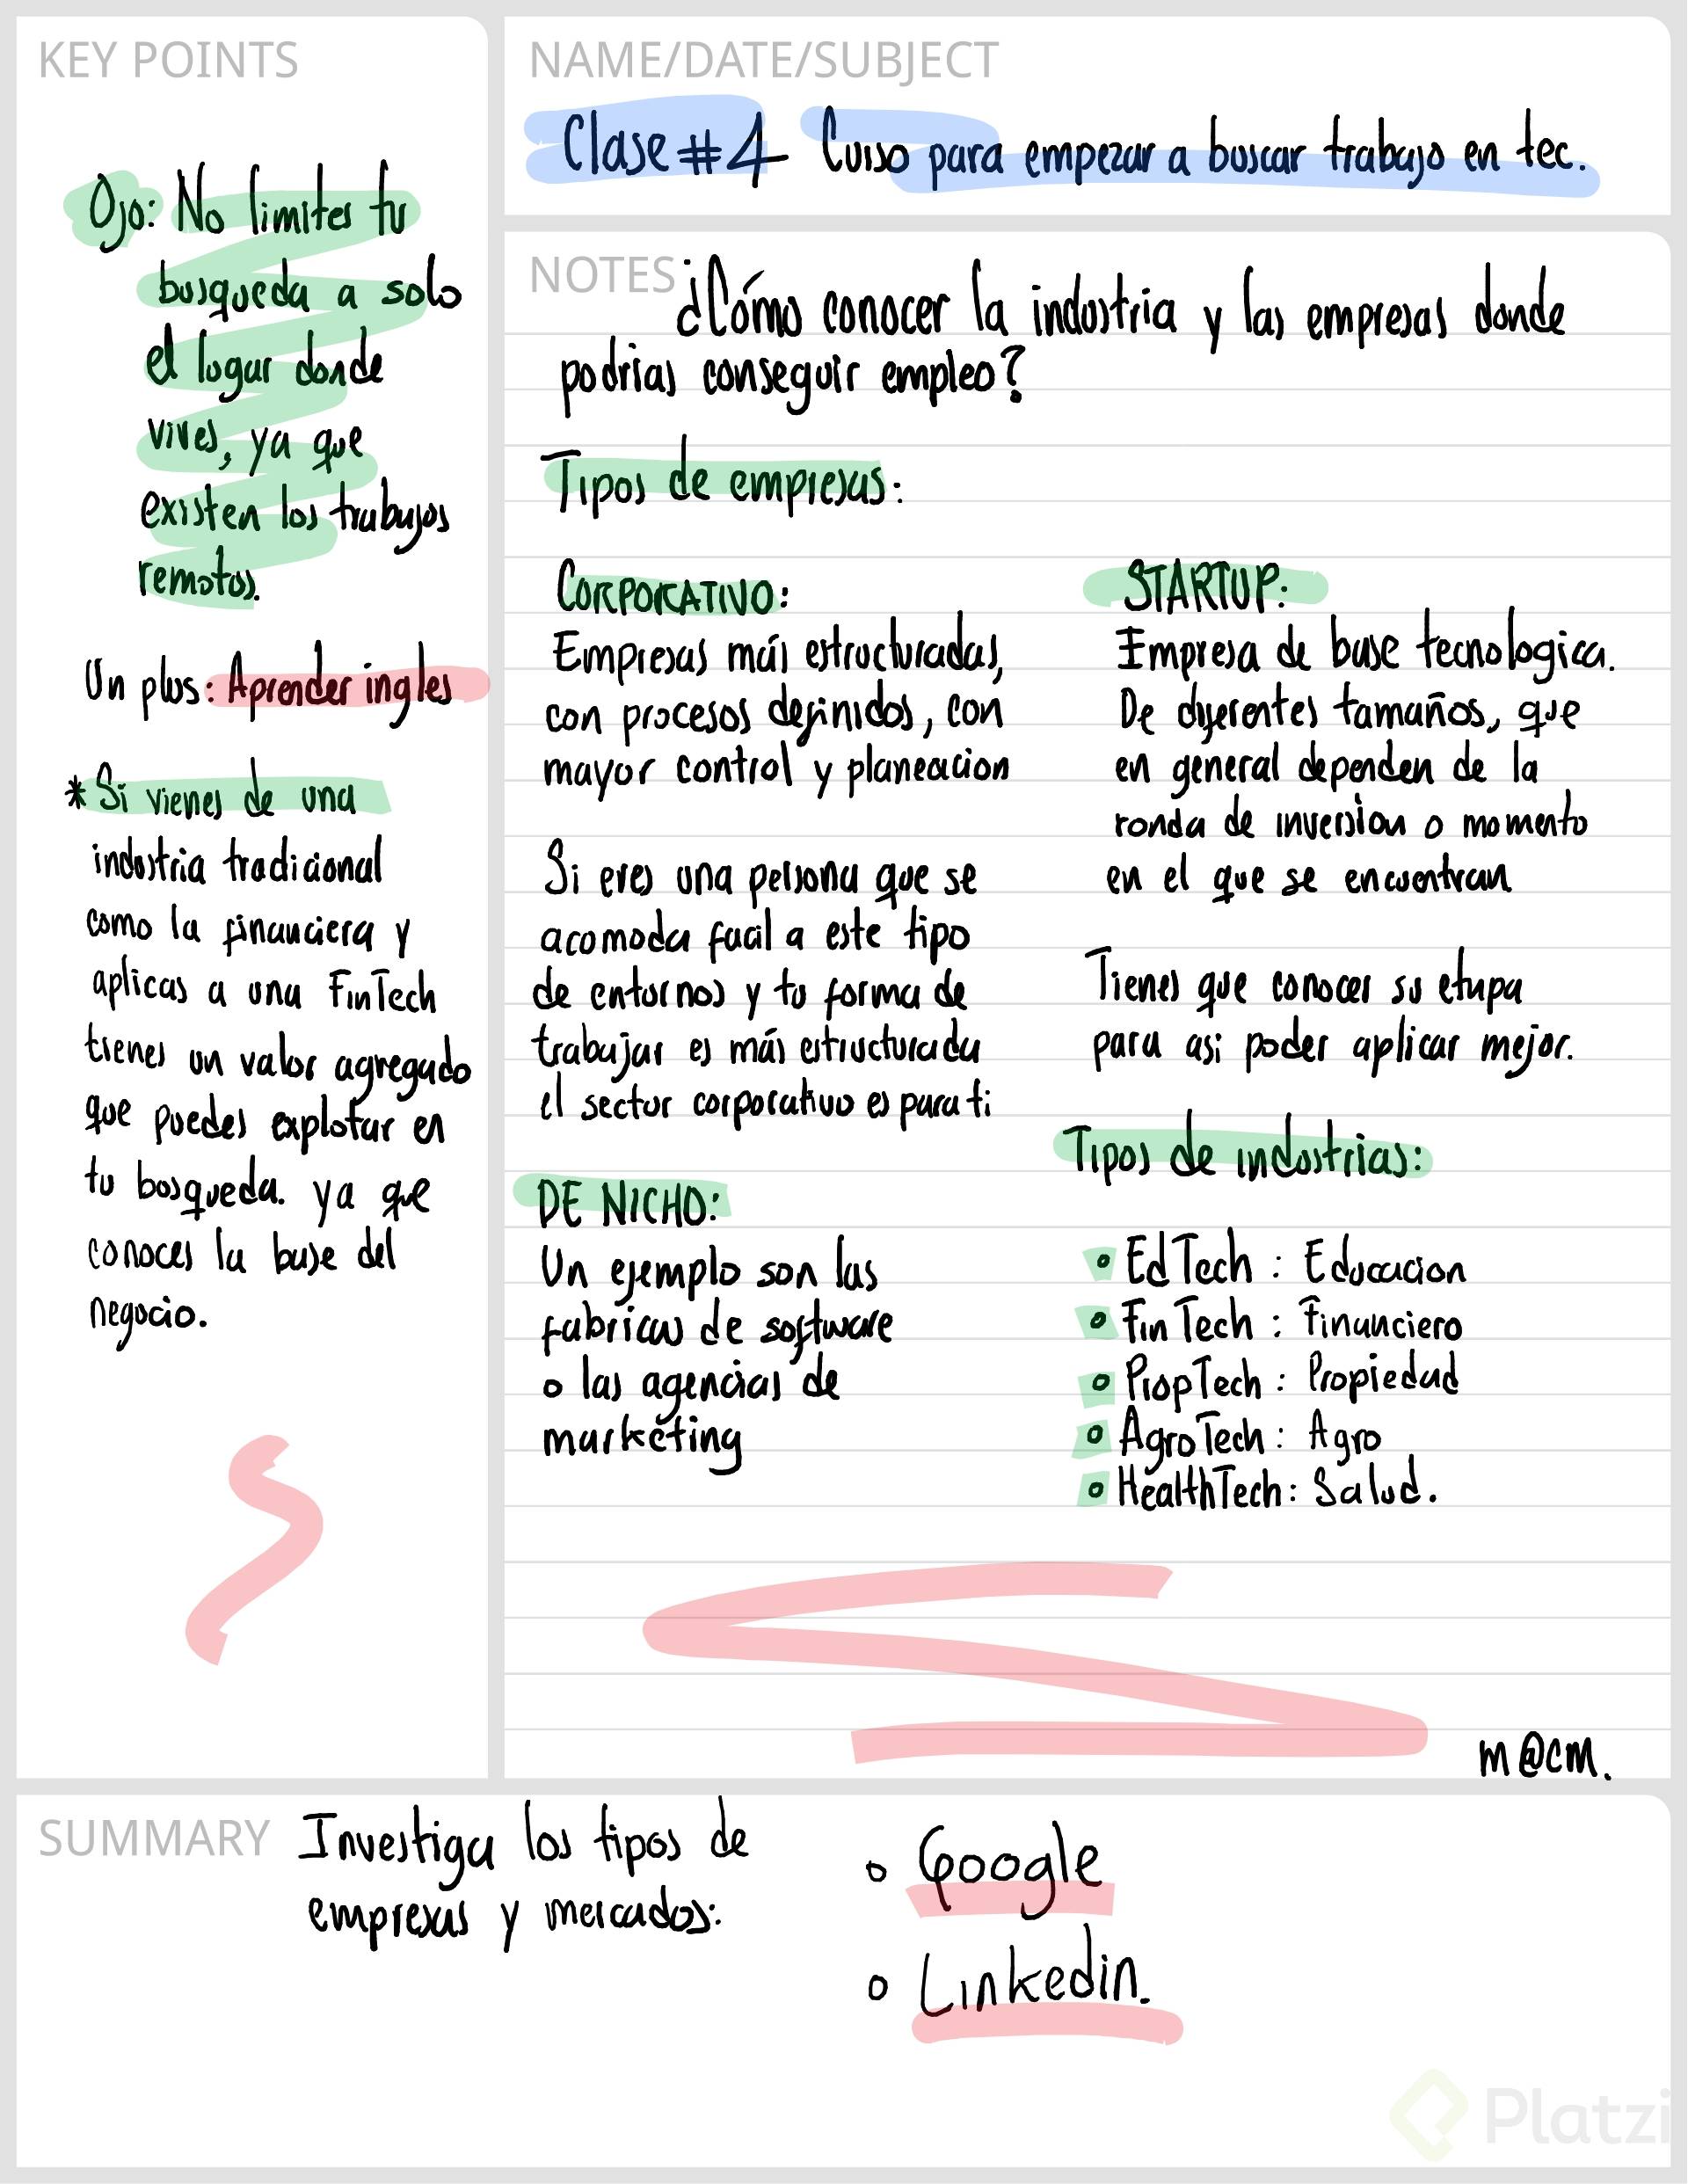 KEY POINTS
Ojo: No limites tu
busqueda a solo
el lugar donde
vives, ya que
existen los trabajos
remotos.
Un plus: Aprender ingles
* Si vienes de una
industria tradicional
como la financiera y
aplicas a una FinTech
tienes un valor agregado
que puedes explotar en
tu busqueda. ya que
conoces la base del
negocio.
NAME/DATE/SUBJECT
Clase #4 Curso para empezar a buscar trabajo en tec.
NOTES
¿Cómo conocer la industria y las empresas donde
podrias conseguir empleo?
Tipos de empresas:
CORPORATIVO:
Empresas más estructuradas,
con procesos definidos, con
mayor control y planeacion
Si eres una persona que se
acomoda facil a este tipo
de entornos y tu forma de
trabajar es más estructurada
el sector corporativo es para ti
DE NICHO:
Un ejemplo son las
fabricas de software
o las agencias de
marketing
STARTUP:
Empresa de base tecnologica.
De diferentes tamaños, que
en general dependen de la
ronda de inversion o momento
en el que se encuentran
Tienes que conocer su etapa
para asi poder aplicar mejor.
Tipos de industrias:
• EdTech : Educacion
• FinTech : Financiero
• PropTech : Propiedad
• AgroTech : Agro
• HealthTech : Salud.
m@cm.
SUMMARY
Investiga los tipos de
empresas y mercados:
• Google
• Linkedin.
Platzi